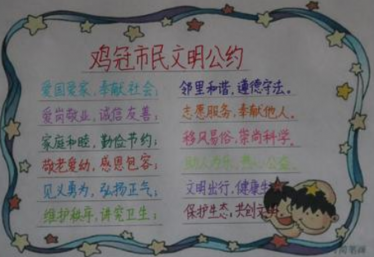 鸡冠市民文明公约
爱国爱家，奉献社会；
爱岗敬业，诚信友善；
家庭和睦，勤俭节约；
敬老爱幼，感恩包容；
见义勇为，弘扬正气；
维护秩序，讲究卫生；
邻里和谐，遵德守法。
志愿服务，奉献他人。
移风易俗，崇尚科学。
文明出行，健康生
保护生态，共创文